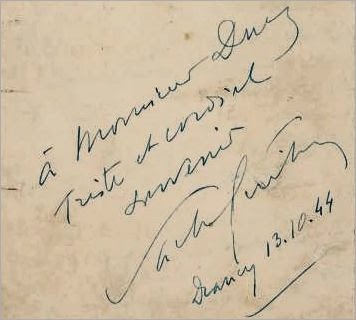 à Monsieur Duc
Triste et cordial
souvenir
Sacha Guitry
Drancy 13.10.44